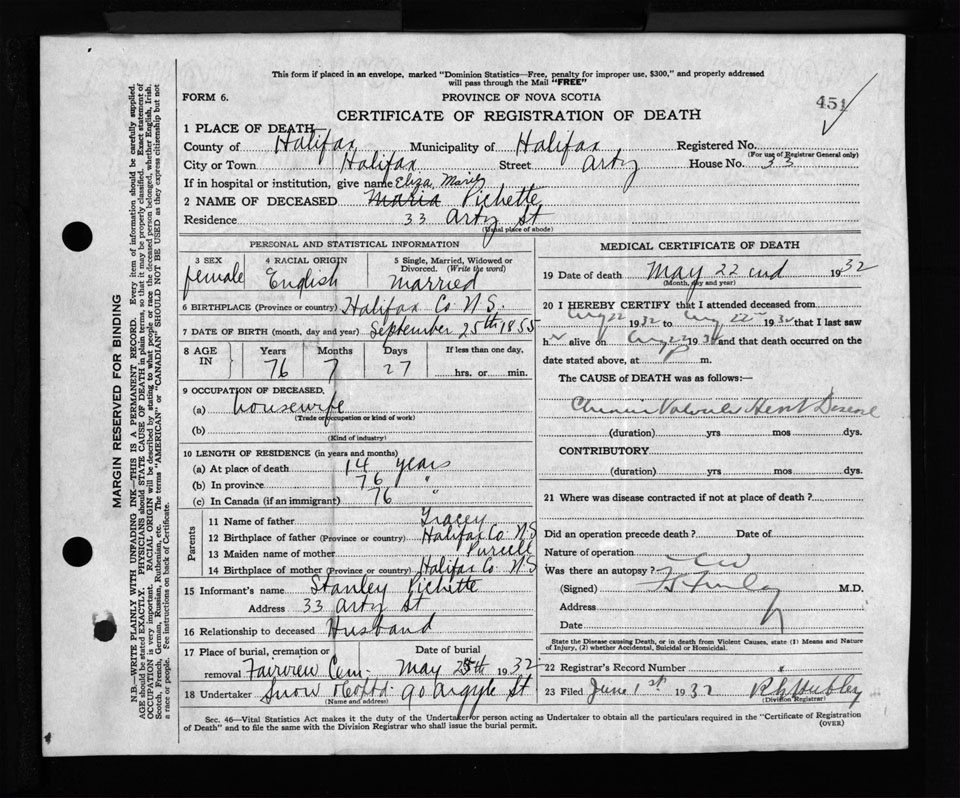 This form if placed in an envelope, marked "Dominion Statistics—Free, penalty for improper use, $300," and properly addressed
will pass through the Mail "FREE"
FORM 6.
PROVINCE OF NOVA SCOTIA
451
CERTIFICATE OF REGISTRATION OF DEATH
1 PLACE OF DEATH
County of Halifax Municipality of Halifax Registered No.
(For use of Registrar General only)
City or Town Halifax Street Arty House No. 33
If in hospital or institution, give name
Eliza
2 NAME OF DECEASED Maria Pichette
Residence 33 Arty St
(Usual place of abode)
PERSONAL AND STATISTICAL INFORMATION
3 SEX 4 RACIAL ORIGIN 5 Single, Married, Widowed or
Divorced. (Write the word)
female English Married
6 BIRTHPLACE (Province or country) Halifax Co N.S.
7 DATE OF BIRTH (month, day and year) September 25th 1855
8 AGE IN Years Months Days If less than one day,
76 7 27 hrs. or min.
9 OCCUPATION OF DECEASED.
(a) housewife
(Trade or occupation or kind of work)
(b)
(Kind of industry)
10 LENGTH OF RESIDENCE (in years and months)
(a) At place of death 14 years
(b) In province 76 "
(c) In Canada (if an immigrant) 76 "
Parents
11 Name of father Tracey
12 Birthplace of father (Province or country) Halifax Co. N.S
13 Maiden name of mother Purcell
14 Birthplace of mother (Province or country) Halifax Co N.S
15 Informant's name Stanley Pichette
Address 33 Arty St
16 Relationship to deceased Husband
17 Place of burial, cremation or Date of burial
removal Fairview Cem. May 25th 1932
18 Undertaker Snow 90 Argyle St
(Name and address)
MEDICAL CERTIFICATE OF DEATH
19 Date of death May 22 1932
(Month, day and year)
20 I HEREBY CERTIFY that I attended deceased from
22 1932 to 22 1932 that I last saw
h alive on 22 193 and that death occurred on the
date stated above, at P m.
The CAUSE OF DEATH was as follows:—
Chronic Valvular Heart Disease
(duration) yrs mos dys.
CONTRIBUTORY
(duration) yrs. mos. dys.
21 Where was disease contracted if not at place of death?
Did an operation precede death? Date of
Nature of operation
Was there an autopsy?
(Signed) M.D.
Address
Date
State the Disease causing Death, or in death from Violent Causes, state (1) Means and Nature
of Injury, (2) whether Accidental, Suicidal or Homicidal.
22 Registrar's Record Number
23 Filed June 1st 1932
(Division Registrar)
Sec. 46—Vital Statistics Act makes it the duty of the Undertaker or person acting as Undertaker to obtain all the particulars required in the "Certificate of Registration
of Death" and to file the same with the Division Registrar who shall issue the burial permit.
(OVER)
MARGIN RESERVED FOR BINDING
N.B.—WRITE PLAINLY WITH UNFADING INK—THIS IS A PERMANENT RECORD. Every item of information should be carefully supplied.
AGE should be stated EXACTLY. PHYSICIANS should STATE CAUSE OF DEATH in plain terms, so that it may be properly classified. Exact statement of
OCCUPATION is very important. RACIAL ORIGIN will be described by stating to what people or race the deceased person belonged, whether English, Irish,
Scotch, French, German, Russian, Ruthenian, etc. The terms "AMERICAN" or "CANADIAN" SHOULD NOT BE USED as they express citizenship but not
a race or people. See instructions on back of Certificate.